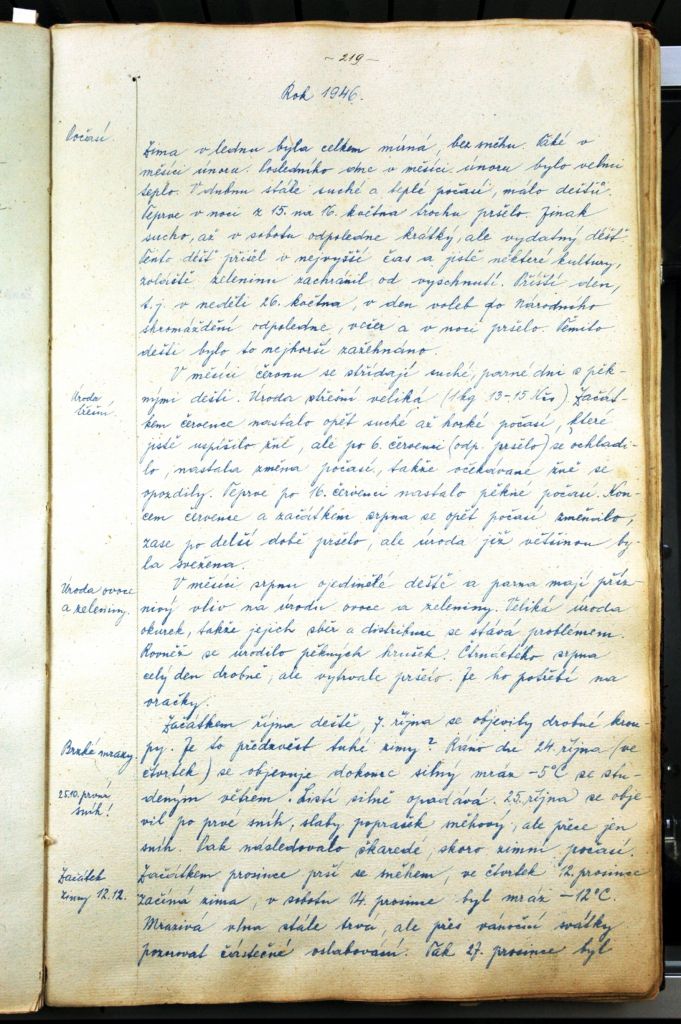 - 219 -
Rok 1946.
Počasí.
Zima v lednu byla celkem mírná, bez sněhu. Také v
měsíci února. Posledního dne v měsíci únoru bylo velmi
teplo. V dubnu stále suché a teplé počasí, málo deštů.
Teprve v noci z 15. na 16. května trochu pršelo. Jinak
sucho, až v sobotu odpoledne krátký, ale vydatný déšť.
Tento déšť přišel v nejvyšší čas a jistě některé kultury,
zvláště zeleninu zachránil od vyschnutí. Příští den,
t. j. v neděli 26. května, v den voleb do Národního
shromáždění odpoledne, večer a v noci pršelo. Těmito
dešti bylo to nejhorší zažehnáno.
V měsíci červnu se střídají suché, parné dni s pěk-
Úroda
třešní.
nými dešti. Úroda střešní veliká (1 kg 13-15 Kčs) Začát-
kem července nastalo opět suché až horké počasí, které
jistě uspíšilo žně, ale po 6. červenci (odp. pršelo) se ochladi-
lo, nastala změna počasí, takže očekávané žně se
opozdily. Teprve po 16. červenci nastalo pěkné počasí. Kon-
cem července a začátkem srpna se opět počasí změnilo,
zase po delší době pršelo, ale úroda již většinou by-
la svežena.
Úroda ovoce
a zeleniny.
V měsíci srpnu ojedinělé deště a parna mají příz-
nivý vliv na úrodu ovoce a zeleniny. Veliká úroda
okurek, takže jejich sběr a distribuce se stává problémem.
Rovněž se urodilo pěkných hrušek. Čtrnáctého srpna
celý den drobně, ale vytrvale pršelo. Je ho potřebí na
oračky.
Začátkem října deště, 7. října se objevily drobné krou-
Brzké mrazy.
py. Je to předzvěst tuhé zimy? Ráno dne 24. října (ve
čtvrtek) se objevuje dokonce silný mráz -5°C se stu-
25.10. první
sníh!
deným větrem. Listí silně opadává. 25. října se obje-
vil po prvé sníh, slabý poprašek sněhový, ale přece jen
sníh. Pak následovalo škaredé, skoro zimní počasí.
Začátek
zimy 12.12.
Začátkem prosince prší se sněhem, ve čtvrtek 12. prosince
začíná zima, v sobotu 14. prosince byl mráz -12°C.
Mrazivá vlna stále trvá, ale přes vánoční svátky
pozorovat částečné oslabování. Tak 27. prosince byl